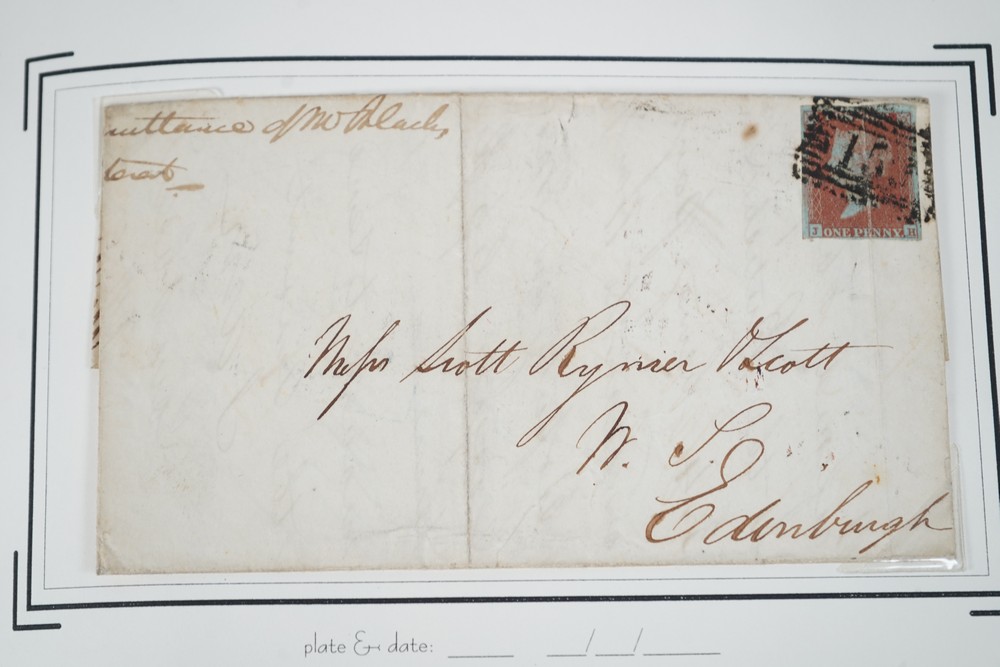 uttance of Mr Black,
terest
15
J ONE PENNY. H
Messrs Scott Rymer & Scott
W. S.
Edenburgh
plate & date: _____ ___/___/______